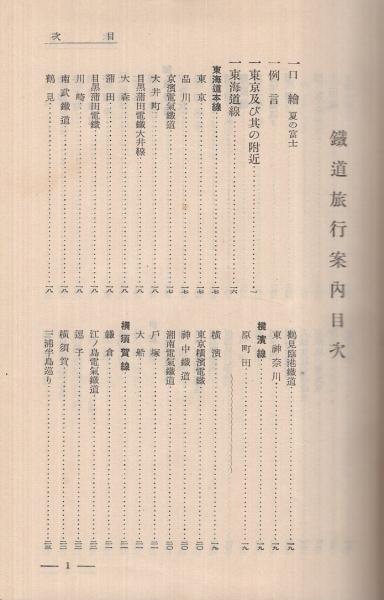 目次
鐵道旅行案内目次
一口繪 夏の富士
一例言
一東京及び其の附近……一
一東海道線……一六
東海道本線
東京……一七
品川……一七
京濱電氣鐵道……一八
大井町……一八
目黑蒲田電鐵大井線……一八
大森……一八
蒲田……一八
目黑蒲田電鐵……一八
川崎……一八
南武鐵道……一八
鶴見……一八
鶴見臨港鐵道……一九
東神奈川……一九
橫濱線……一九
原町田……一九
橫濱……一九
東京橫濱電鐵……二〇
神中鐵道……二〇
湘南電氣鐵道……二〇
戶塚……二一
大船……二一
橫須賀線……二一
鎌倉……二一
江ノ島電氣鐵道……二二
逗子……二二
橫須賀……二二
三浦半島巡り……二三
— 1 —